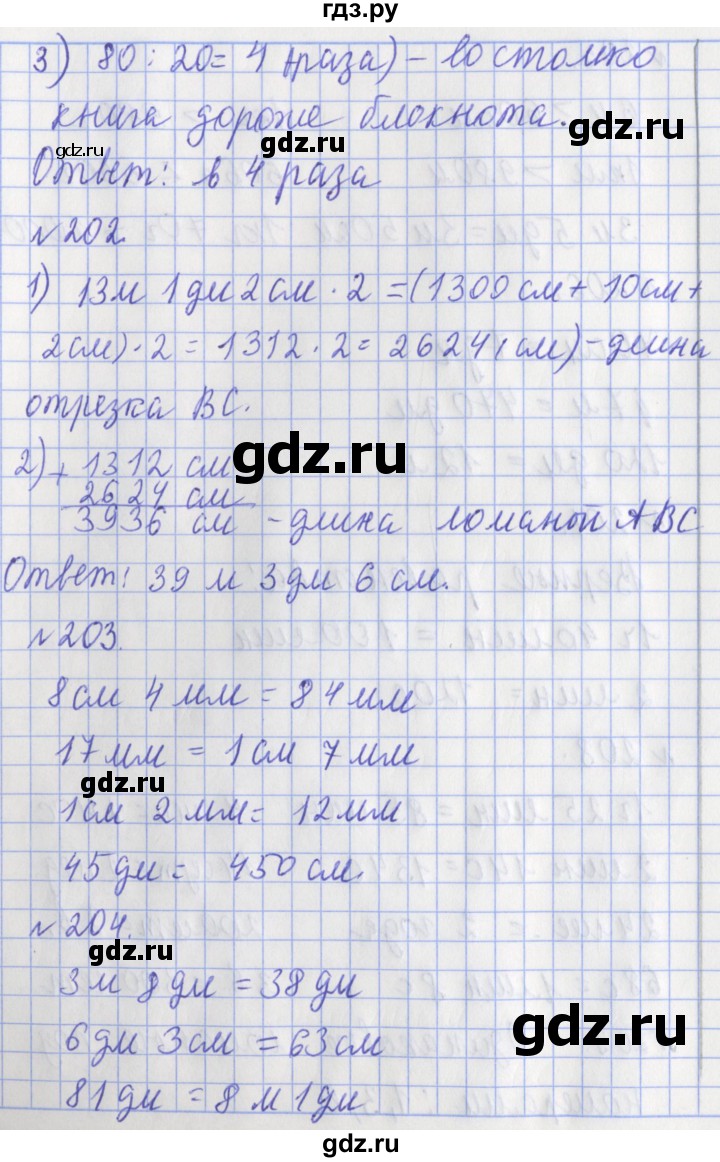 гдз.ру
3) 80 : 20 = 4 (раза) - во столько
книга дороже блокнота.
gdz.ru
gdz.ru
Ответ: в 4 раза
gdz.ru
№ 202.
1) 13 м 1 дм 2 см · 2 = (1300 см + 10 см +
2 см) · 2 = 1312 · 2 = 2624 (см) - длина
отрезка BC.
gdz.ru
2) + 1312 см
2624 см
gdz.ru
3936 см - длина ломаной ABC
Ответ: 39 м 3 дм 6 см.
№ 203.
8 см 4 мм = 84 мм
17 мм = 1 см 7 мм
gdz.ru
1 см 2 мм = 12 мм
45 дм = 450 см.
№ 204.
gdz.ru
3 м 8 дм = 38 дм
gdz.ru
6 дм 3 см = 63 см
81 дм = 8 м 1 дм
gdz.ru